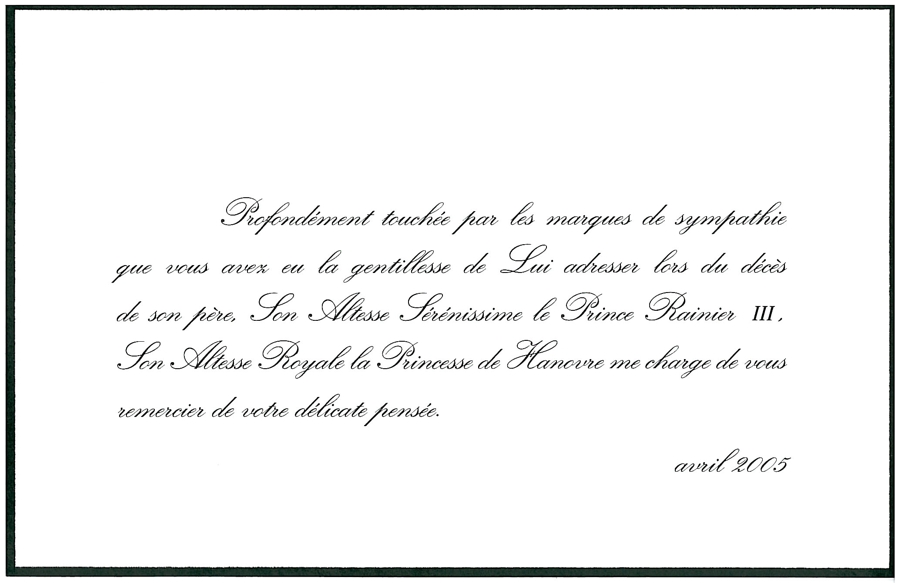 Profondément touchée par les marques de sympathie
que vous avez eu la gentillesse de Lui adresser lors du décès
de son père, Son Altesse Sérénissime le Prince Rainier III,
Son Altesse Royale la Princesse de Hanovre me charge de vous
remercier de votre délicate pensée.
avril 2005